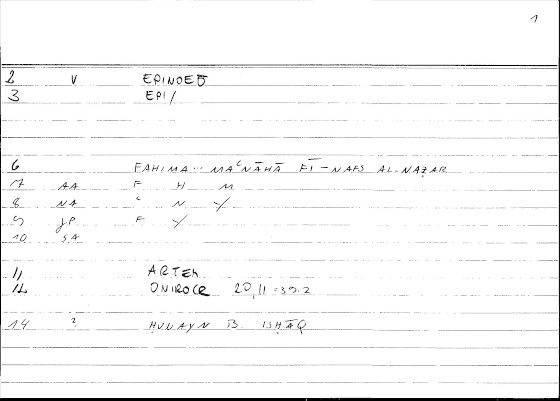 1
2 V EPINOEŌ
3 EPI/
6 FAHIMA... MAʿNĀHĀ FĪ-NAFS AL-NAẒAR
7 AA F H M
8 NA ʿ N Y
9 JP F Y
10 SA
11 ARTEM
12 ONIROCR 20,11-39.2
14 ? ḤUNAYN B. ISḤĀQ